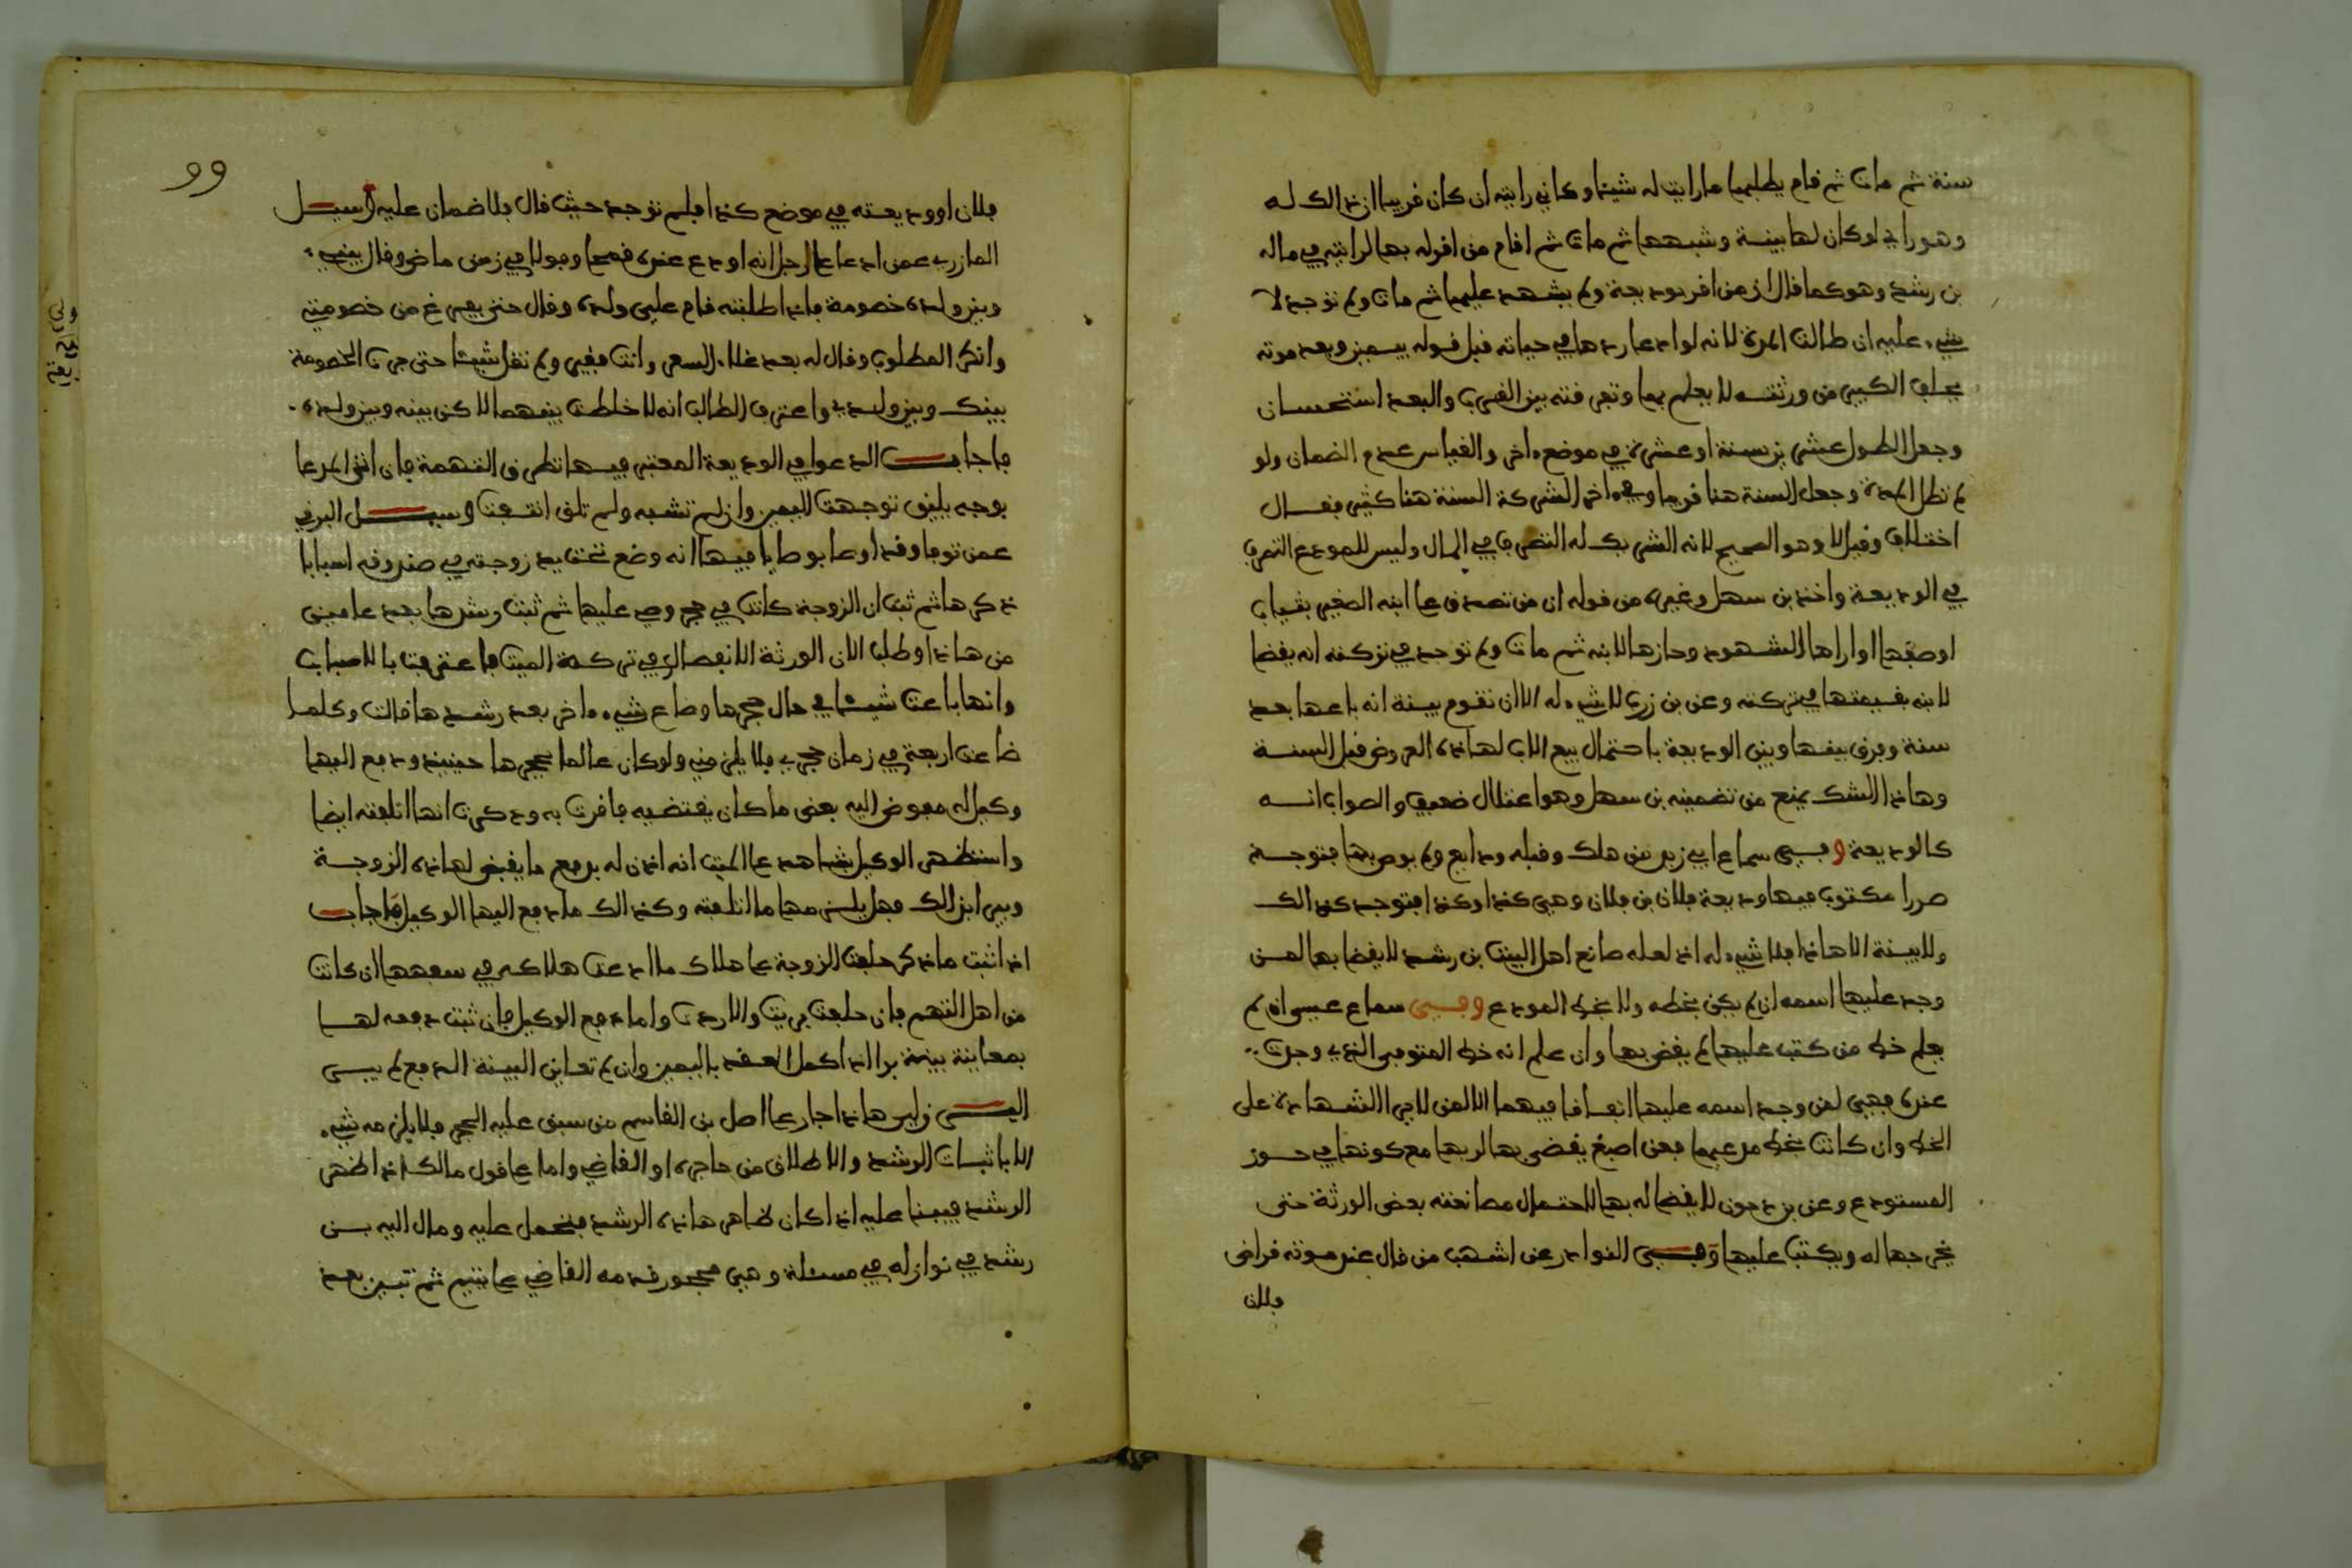 سنة ثم مات ثم قام يطلبها ما رايت له شيئا وكاني رايته ان كان قريبا ان ذالك له
وهو رايي لو كان لها بينة وشبهها ثم مات ثم اقام من اقر له بها لرايته في ماله
بن رشد وهو كما قال ان من اقر بوديعة ولم يشهد عليها ثم مات ولم توجد لا
شيء عليه ان طالت المدة لانه لو ادعا ردها في حياته قبل قوله بيمين وبعد موته
يحلف الكبير من ورثته لا يعلم بها وتعرفته بين القرب والبعد استحسان
وجعل الطول عشرين سنة او عشرة في موضع ءاخر والقياس عدم الضمان ولو
لم تطل المدة وجعل السنة هنا قربا وفي ءاخر الشركة السنة هنا كثير فقال
اختلاف وقيل لا وهو الصحيح لانه الشريك له التصرف في المال وليس للمودع التصرف
في الوديعة واخذ بن سهل وغيره من قوله ان من تصدق على ابنه الصغير بثياب
او صبغها او اراها الشهود وحازها لابنه ثم مات ولم توجد في تركته انه يقضا
لابنه بقيمتها في تركته وعن بن زرب لا شيء له الا ان تقوم بينة انه باعها بعد
سنة وفرق بينها وبين الوديعة باحتمال بيع الاب لهاذه العروض قبل السنة
وهاذا الشك يمنع من تضمينه بن سهل وهو اعتلال ضعيف والصواب انه
كالوديعة وفي سماع ابي زيد من هلك وقبله ودايع ولم يوص بها فتوجد
صررا مكتوب فيها وديعة فلان بن فلان وهي كذا وكذا فتوجد كذالك
ولا بينة الا هاذا فلا شيء له اذ لعله صانع اهل البيت بن رشد لا يقضا بها لمن
وجد عليها اسمه ان لم يكن بخطه ولا بخط المودع وفي سماع عيسى ان لم
يعلم خط من كتب عليها لم يقض بها وان علم انه خط المتوفى الذي وجدت
عنده فهي لمن وجد اسمه عليها اتفاقا فيهما الا لمن لا يرا الشهادة على
الخط وان كانت بخط مدعيها فعن اصبغ يقضى بها لربها مع كونها في حوز
المستودع وعن بن دحون لا يقضا له بها لاحتمال مصانعته بعض الورثة حتى
يخرجها له ويكتب عليها وفي النوادر عن اشهب من قال عند موته قراض
فلان
99
فلان او وديعته في موضع كذا فلم توجد حيث قال فلا ضمان عليه وسيل
المازري عمن ادعا على رجل انه اودع عنده قمحا وفولا في زمن ماض وقال بيني
وبين ولده خصومة فاذا طلبته قام علي ولده وقال حتى يفرغ من خصومته
وانكر المطلوب وقال له بعد غلاء السعر وانت فقير ولم تقل شيئا حتى جرت الخصومة
بينك وبين ولدي واعترف الطالب انه لا خلطة بينهما لاكن بينه وبين ولده
فاجاب الدعوا في الوديعة المعتبر فيها تطرق التهمة فان اتى المدعا
بوجه يليق توجهت اليمين وان لم تشبه ولم تلق انتفت وسيل البرني
عمن توفا وقد اوصا بوصايا فيها انه وضع تحت يد زوجته في صندوقه اسبابا
ذكرها ثم ثبت ان الزوجة كانت في حجر وصي عليها ثم ثبت رشدها بعد عامين
من هاذا وطلب الان الورثة الانفصال في تركة الميت فاعترفت بالاسباب
وانها باعت شيئا في حال حجرها وضاع شيء ءاخر بعد رشدها قالت وكلما
ضاعت اربعة في زمان حجري فلا يلزمني ولو كان عالما بحجرها حينيذ ودفع اليها
وكيل له مفوض اليه بعض ما كان يقتضيه فاقرت به وذكرت انها اتلفته ايضا
واستظهر الوكيل بشاهد على الميت انه اذن له بدفع ما يقبض لهاذه الزوجة
وبي ابن الك فهل يلزمها ما اتلفته وكذالك ما دفع اليها الوكيل فاجاب
اذا ثبت ما ذكر حلفت الزوجة على هلاك ما ادعت هلاكه في سفهها ان كانت
من اهل التهم فان حلفت بريت والا ردت واما دفع الوكيل فان ثبت دفعه لها
بمعاينة بينة برا اذا اكمل العقد باليمين وان لم تعاين البينة الدفع لم يبرى
البرزلي هاذا جار على اصل بن القاسم من سبق عليه الحجر فلا يلزمه شيء
الا باثبات الرشد والاطلاق من حاجره او القاضي واما على قول مالك اذا ظهر
الرشد فيبنا عليه اذا كان ظاهر هاذه الرشد فتحمل عليه ومال اليه بن
رشد في نوازله في مسئلة وهي محجور قدمه القاضي على يتيم ثم تبين بعد